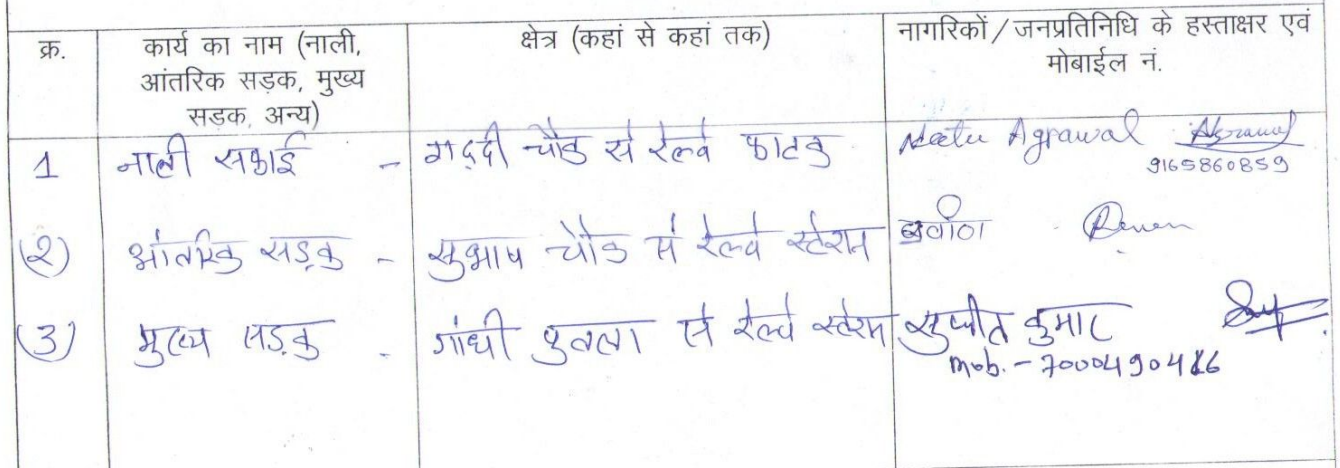 क्र. कार्य का नाम (नाली, आंतरिक सड़क, मुख्य सड़क, अन्य) क्षेत्र (कहां से कहां तक) नागरिकों/जनप्रतिनिधि के हस्ताक्षर एवं मोबाईल नं.
1 नाली सफाई - गद्दी चौक से रेल्वे फाटक Neetu Agrawal Agrawal
9165860859
(2) आंतरिक सड़क - सुभाष चौक से रेल्वे स्टेशन
(3) मुख्य सड़क - गांधी पुतला से रेल्वे स्टेशन सुजीत कुमार
mob. -